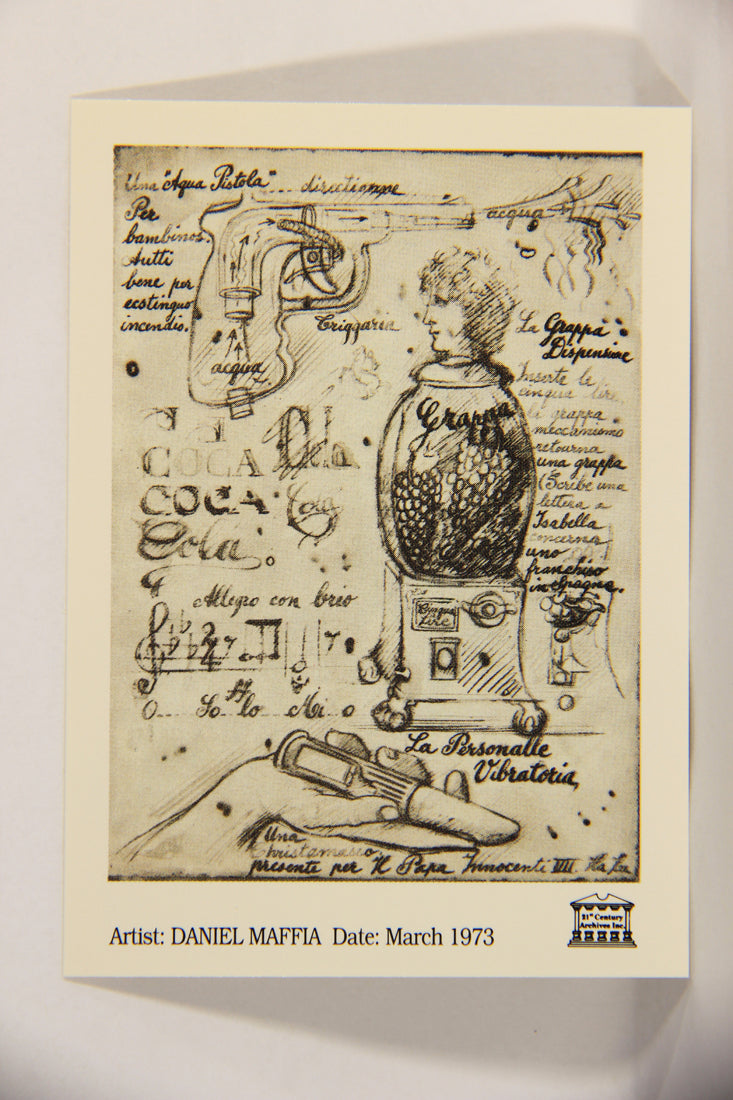 Una "Aqua Pistola"
directionne
Per
bambinos.
Autti
bene per
ecstinguo
incendio.
acqua
Triggaria
acqua
La Grappa
Dispensione
Inserte le
cinqua lire,
grappa
meccanismo
retourna
una grappa
(Scribe una
lettera a
Isabella
concerna
uno
franchiso
in Spagna.
Grappa
COCA
COCA
Cola
Cola
Allegro con brio
2
4
ff
O So lo Mi o
Cinqua
Lire
La Personalle
Vibratoria
Una
Christamasso
presente per il Papa Innocenti VIII. Ha ha
Artist: DANIEL MAFFIA Date: March 1973
21st Century
Archives Inc.